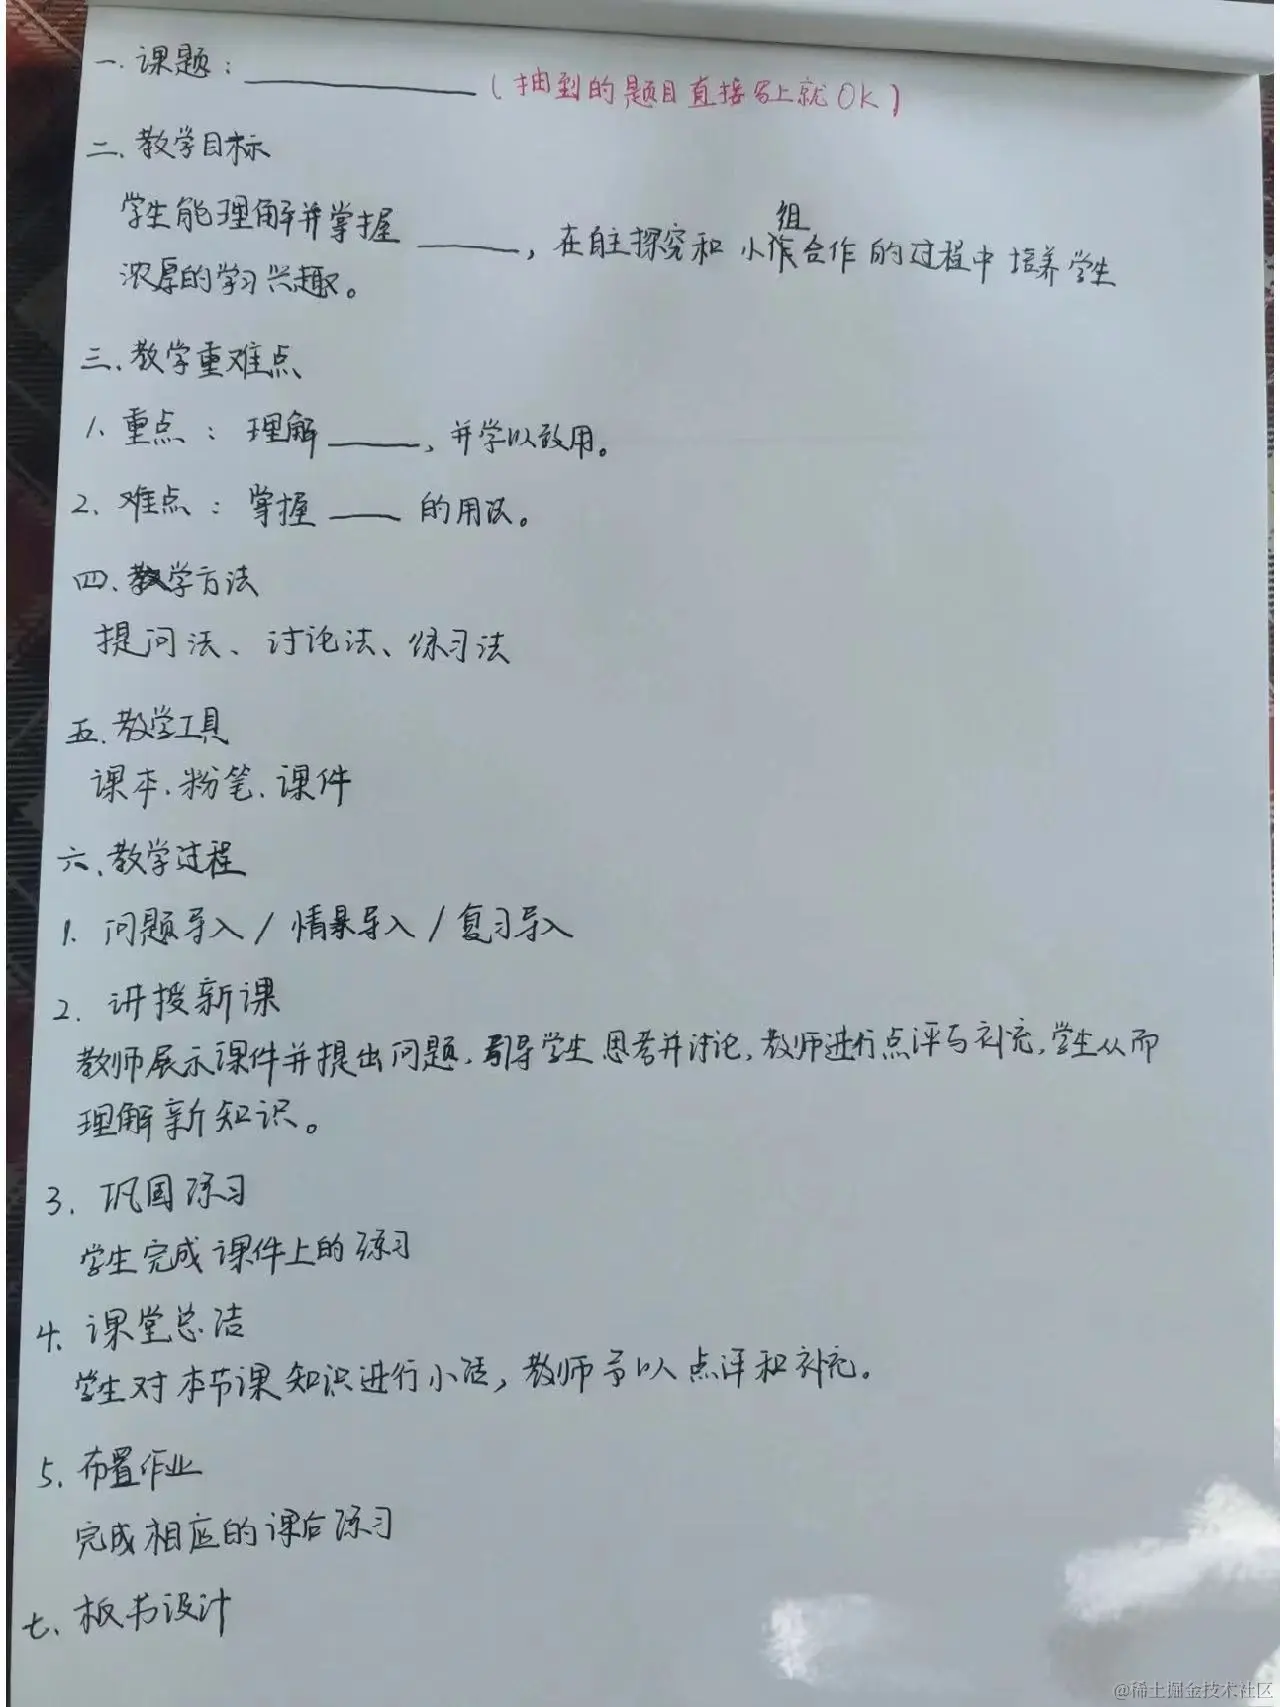 一.课题：__________（抽到的题目直接写上就OK）
二.教学目标
学生能理解并掌握______，在自主探究和小组合作的过程中培养学生
浓厚的学习兴趣。
三.教学重难点
1.重点：理解______，并学以致用。
2.难点：掌握_____的用法。
四.教学方法
提问法、讨论法、练习法
五.教学工具
课本.粉笔.课件
六.教学过程
1.问题导入/情景导入/复习导入
2.讲授新课
教师展示课件并提出问题，引导学生思考并讨论，教师进行点评与补充，学生从而
理解新知识。
3.巩固练习
学生完成课件上的练习
4.课堂总结
学生对本节课知识进行小结，教师予以点评和补充。
5.布置作业
完成相应的课后练习
七.板书设计
@稀土掘金技术社区